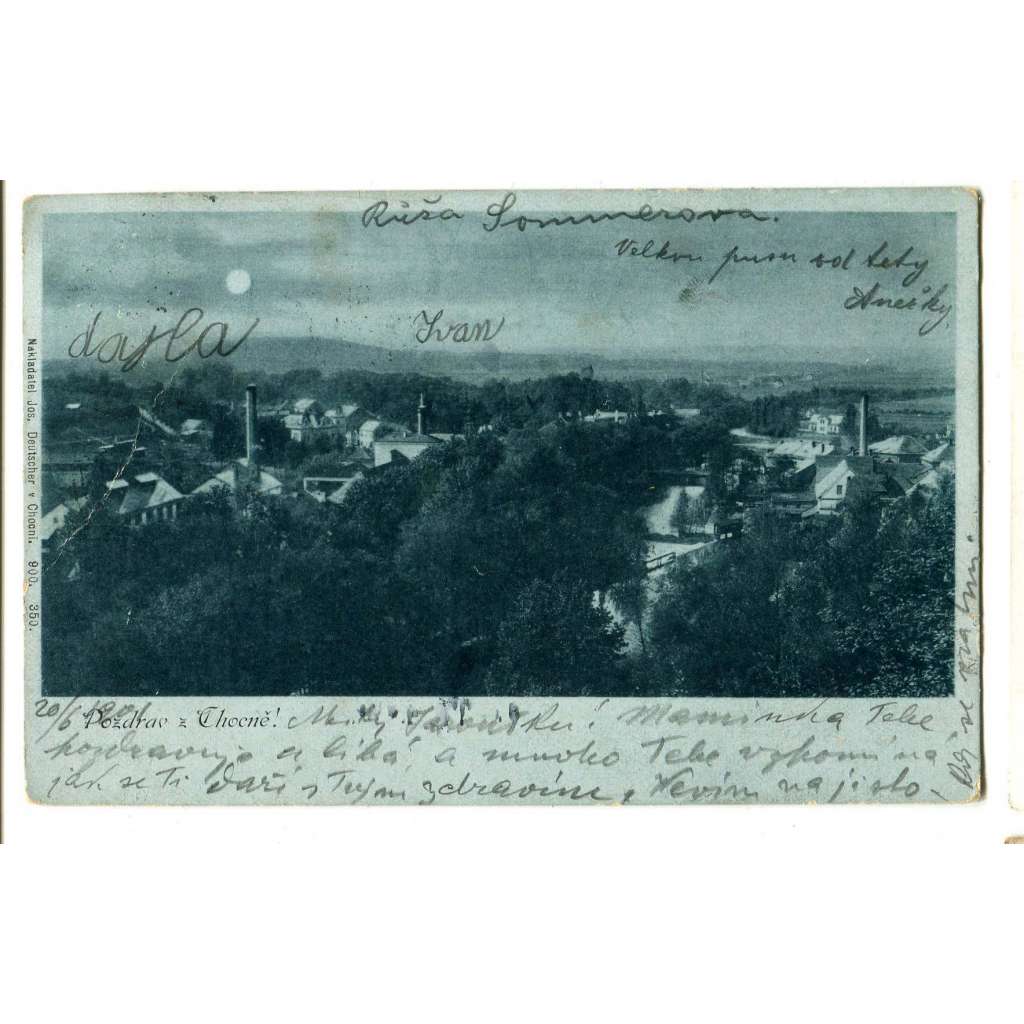 Růža Sommerova.
Velkou pusu od tety
Anežky.
Ivan
Nakladatel Jos. Deutscher v Chocni. 900. 350.
20/6 Pozdrav z Chocně! Milý Ivoušku! Maminka Tebe
pozdravuje a líbá, a mnoho Tebe vzpomíná
jak se Ti daří s Tvým zdravím, Nevím na jisto